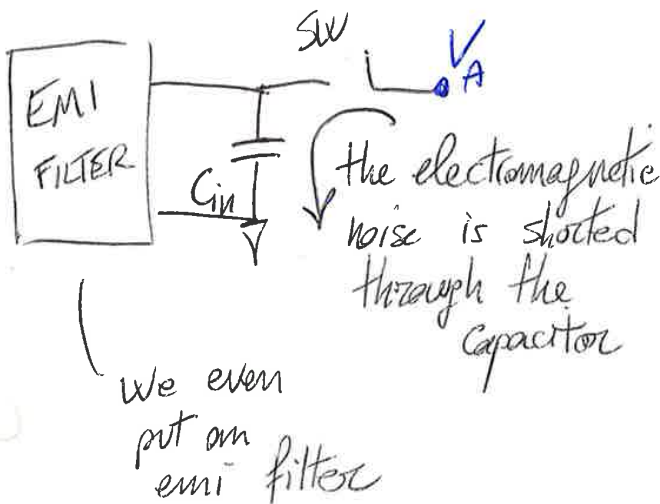 SW
V_A
EMI
FILTER
Cin
the electromagnetic
noise is shorted
through the
capacitor
We even
put an
emi filter